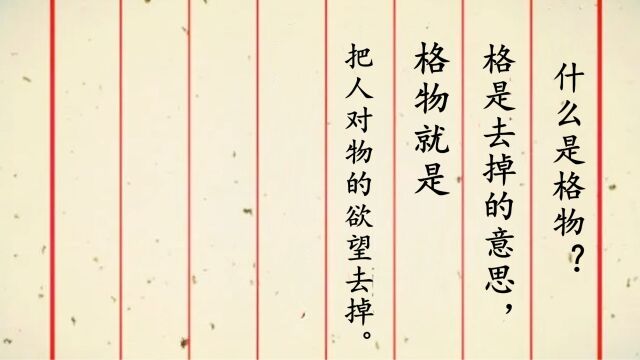 什么是格物？
格是去掉的意思，
格物就是
把人对物的欲望去掉。